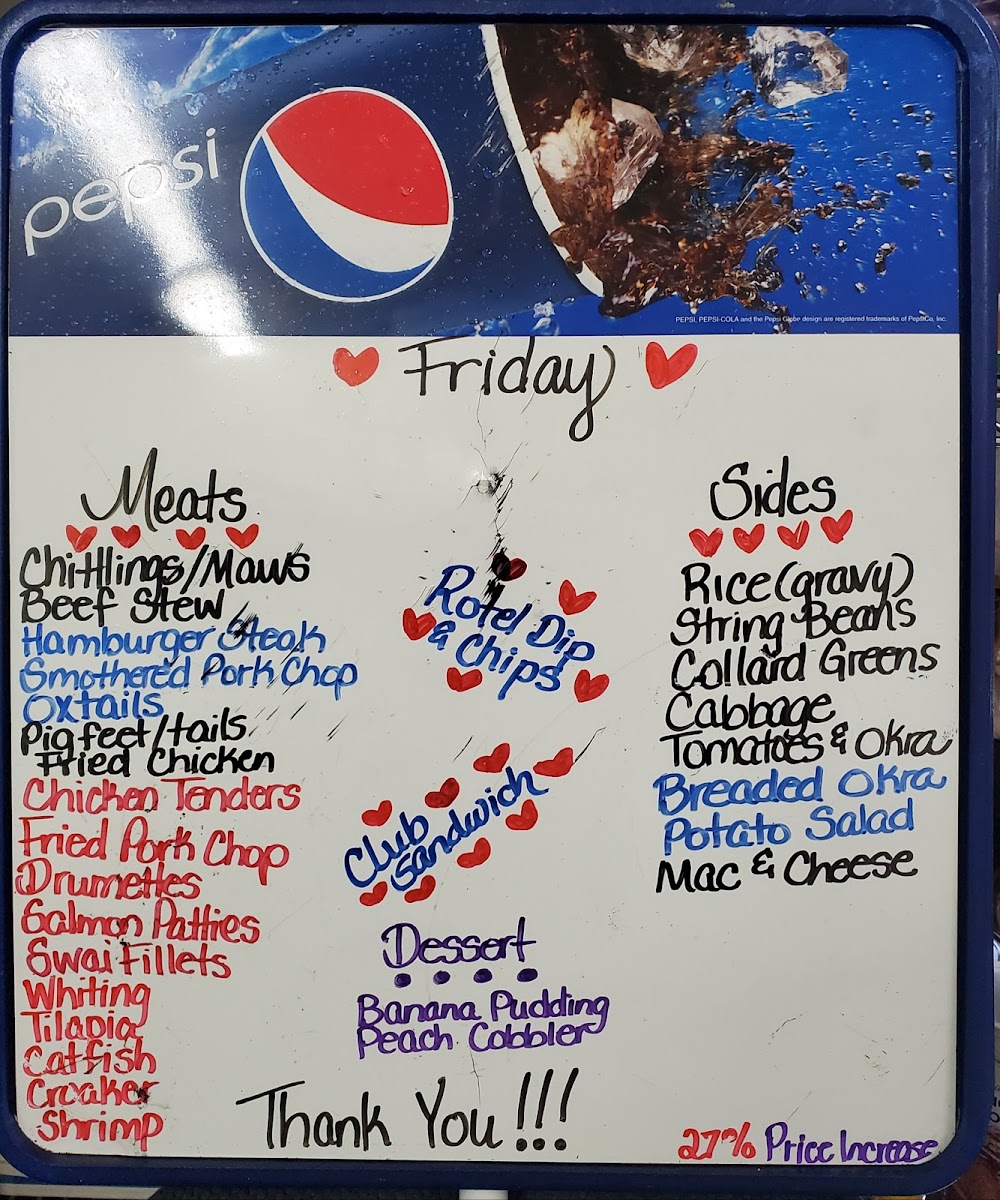 pepsi
PEPSI, PEPSI-COLA and the Pepsi Globe design are registered trademarks of PepsiCo, Inc.
Friday
Meats
Chittlings/Maws
Beef Stew
Hamburger Steak
Smothered Pork Chop
Oxtails
Pigfeet/tails
Fried Chicken
Chicken Tenders
Fried Pork Chop
Drumettes
Salmon Patties
Swai Fillets
Whiting
Tilapia
Catfish
Croaker
Shrimp
Rotel Dip
& Chips
Club
Sandwich
Dessert
Banana Pudding
Peach Cobbler
Sides
Rice (gravy)
String Beans
Collard Greens
Cabbage
Tomatoes & Okra
Breaded Okra
Potato Salad
Mac & Cheese
Thank You!!!
27% Price Increase